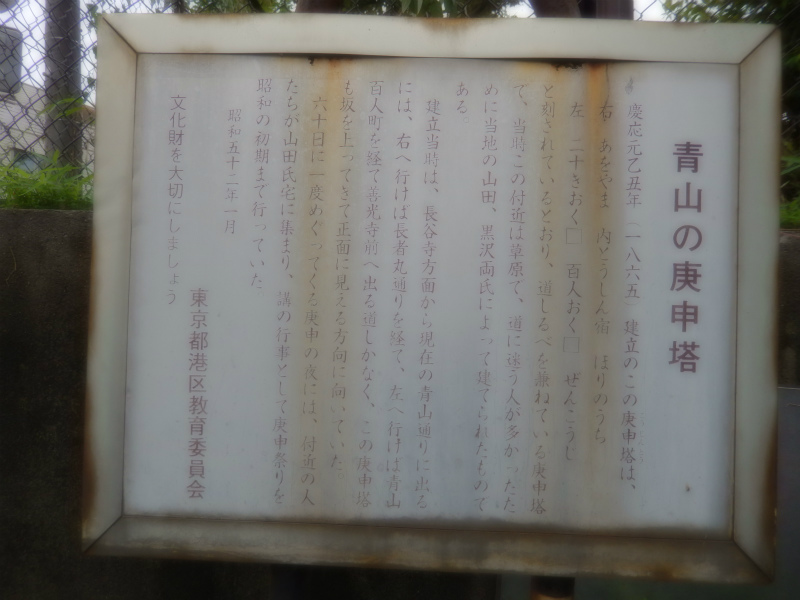 青山の庚申塔
慶応元乙丑年(一八六五)建立のこの庚申塔は、
右 あをやま 内とうしん宿 ほりのうち
左 二十きおく□ 百人おく□ ぜんこうじ
と刻されているとおり、道しるべを兼ねている庚申塔
で、当時この付近は草原で、道に迷う人が多かったた
めに当地の山田、黒沢両氏によって建てられたもので
ある。
建立当時は、長谷寺方面から現在の青山通りに出る
には、右へ行けば長者丸通りを経て、左へ行けば青山
百人町を経て善光寺前へ出る道しかなく、この庚申塔
も坂を上ってきて正面に見える方向に向いていた。
六十日に一度めぐってくる庚申の夜には、付近の人
たちが山田氏宅に集まり、講の行事として庚申祭りを
昭和の初期まで行っていた。
昭和五十二年一月
東京都港区教育委員会
文化財を大切にしましょう